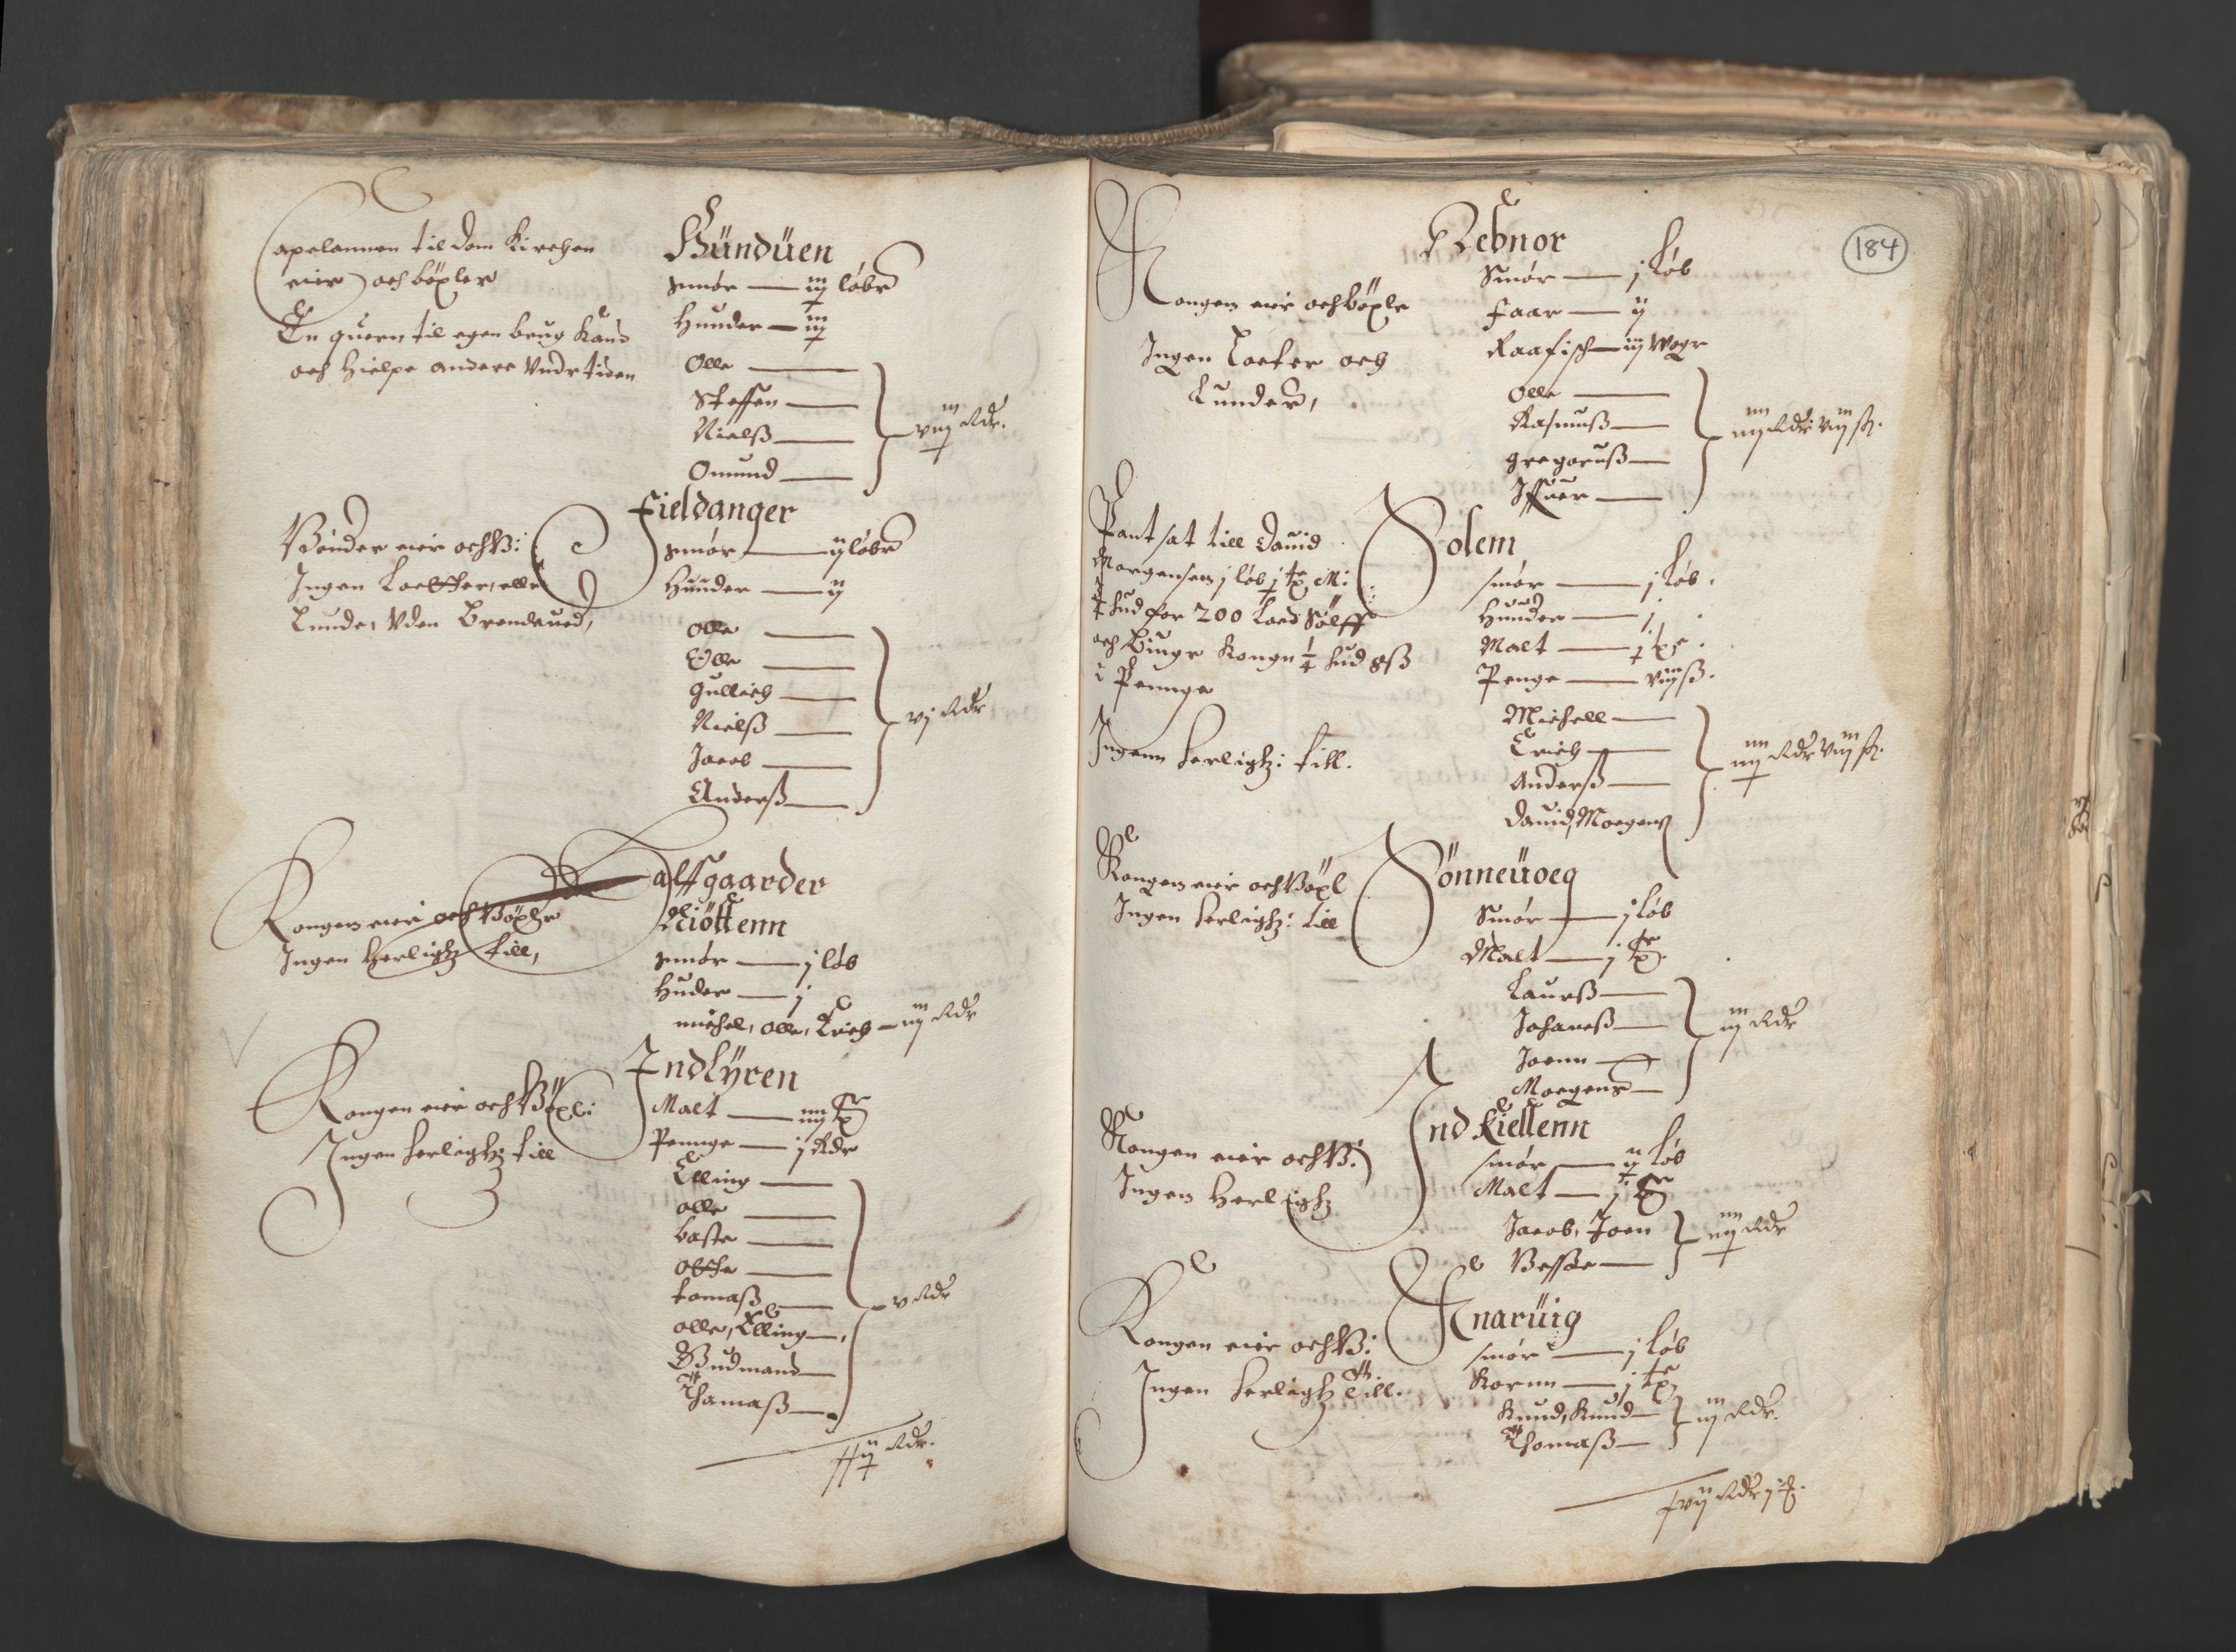 Capelannen til dom Kirchen
eier och böxler
En quern til egen brug kand
och hielpe andere undertiden
Hündüen
Smör — iij löber
Huuder — iij
Olle —
Steffen —
Nielß —
Omund —
viij Rdr.
Bönder eier och B:
Ingen Loetther eller
Lunde, Uden Brendeued,
Fieldanger
Smör — ij löber
Huuder — ij
Olle —
Olle —
Gullich —
Nielß —
Jacob —
Anderß —
vj Rdr
Kongen eier och Böxler
Ingen Herligh till,
Halffgaarder
Miöttenn
Smör — j löb
Huder — j
Michel, Olle, Erich — iij Rdr
Kongen eier och Böxl:
Ingen herlighz till
Indlÿren
Malt — iiij
Pennge — j Rdr
Elling —
Olle —
baste —
Tomaß —
Olle, Elling —
Gudmand —
Thomaß —
v Rdr
ij Rdr.
184
Rebnor
Kongen eier och böxle
Ingen Loeter och
Lunder,
Smör — j Löb
Faar — ij
Raafisch — iij Woger
Olle —
Rasmuß —
Gregoruß —
Iffuer —
iiij Rdr viij ß.
Pantsat till Dauid
Morgensen j löb j M:
hud for 200 Loed Sölff
och Biuger Kongen 1/4 hud 8 ß
i Pennge
Ingenn herligh: till.
Solem
Smör — j Löb.
Huuder — j
Malt — j
Penge — viij ß.
Michell —
Erich —
Anderß —
Dauid, Moegenß
iiij Rdr viij ß.
Kongen eier och Böxl
Ingen herlighz: till
Sönneuoeg
Smör — j Löb
Malt — j
Laurß —
Johaneß —
Joenn —
Moegens —
iij Rdr
Kongen eier och B:
Ingen Herlighz
Ind Kiellenn
Smör — ij Löb
Malt — j
Jacob, Joen
Besse —
iiij Rdr
Kongen eier och B:
Ingen herligh till.
Knarüig
Smör — j Löb
Kornn — j
Knud, Knud —
Thomaß —
iij Rdr.
xvij Rdr